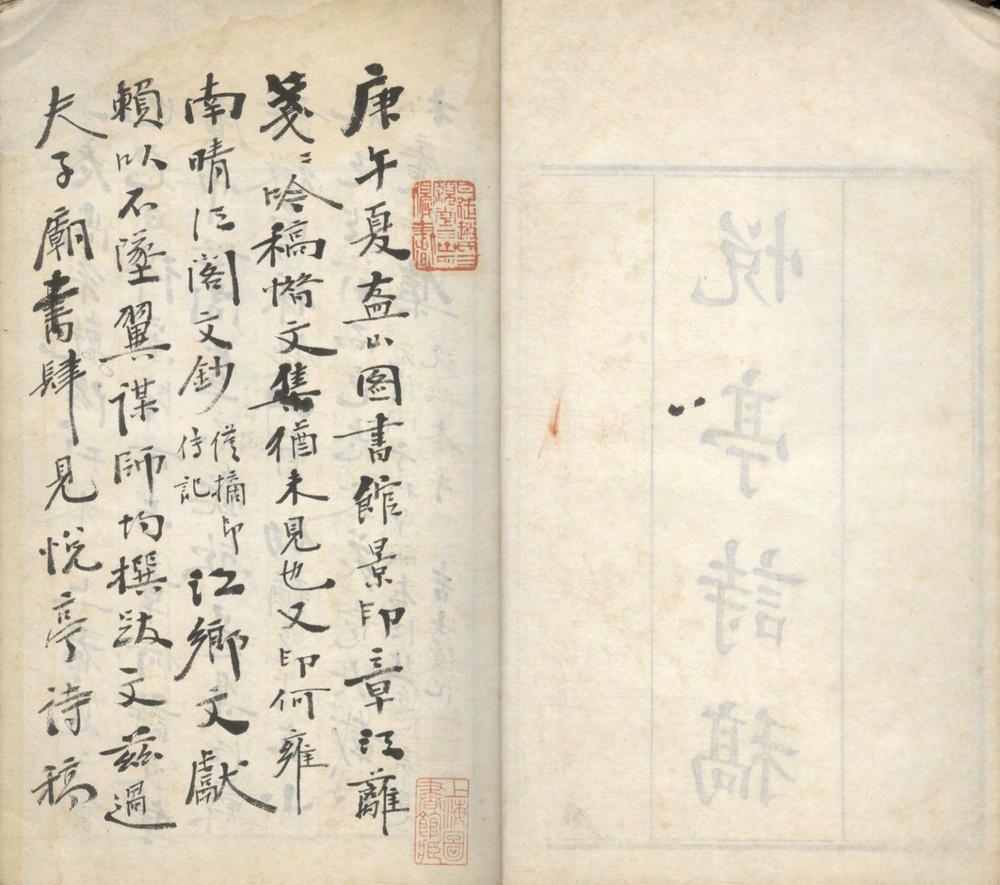 悅亭詩稿
庚午夏盋山図書館景印章江蘺
箋〻吟稿文集猶未見也又印何雍
南晴江閣文鈔僅摘印傳記江鄉文獻
賴以不墜翼謀師均撰跋文茲過
夫子廟書肆見悅亭诗稿
上海圖書館藏